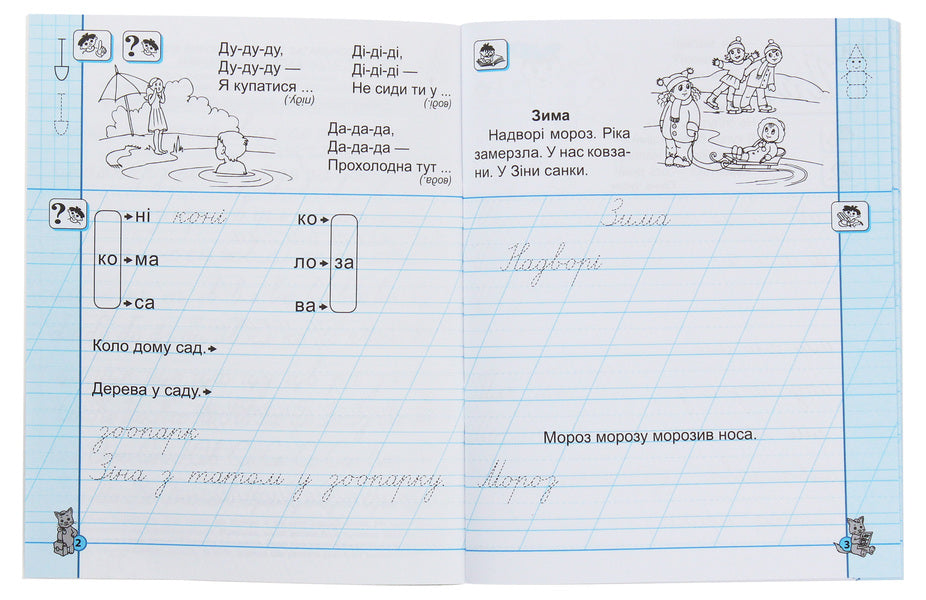 Ду-ду-ду,
Ду-ду-ду —
Я купатися ...
(піду.)
Ді-ді-ді,
Ді-ді-ді —
Не сиди ти у ...
(воді.)
Да-да-да,
Да-да-да —
Прохолодна тут ...
(вода.)
?
?
ко
ні коні
ма
са
ко
ло
ва
за
Коло дому сад.
Дерева у саду.
зоопарк
Зіна з татом у зоопарку.
2
Зима
Надворі мороз. Ріка
замерзла. У нас ковза-
ни. У Зіни санки.
Зима
Надворі
Мороз морозу морозив носа.
Мороз
3